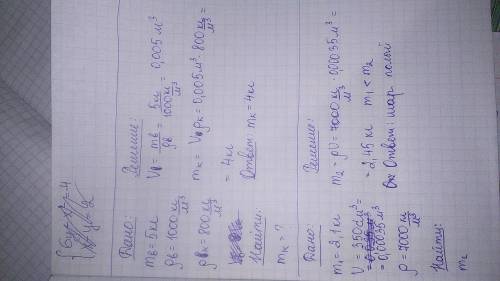 Дано:
m в = 5кг
ρв = 1000 кг/м³
ρк = 800 кг/м³
Найти:
mк = ?
Решение:
Vв = mв/ρв = 5кг/1000 кг/м³ = 0,005 м³
mк = Vвρк = 0,005м³ · 800 кг/м³ =
= 4кг
Ответ: mк = 4кг
Дано:
m₁ = 2,1кг
V = 350см³ =
= 0,00035 м³
ρ = 7000 кг/м³
Найти:
m₂
Решение:
m₂ = ρV = 7000 кг/м³ · 0,00035м³ =
= 2,45 кг m₁ < m₂
Ответ: шар полый